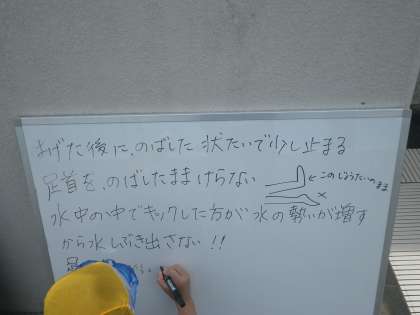 あげた後に、のばした状たいで少し止まる
足首を、のばしたままけらない
←このじょうたいのまま
×
水中の中でキックした方が水の勢いが増す
から水しぶき出さない!!
足